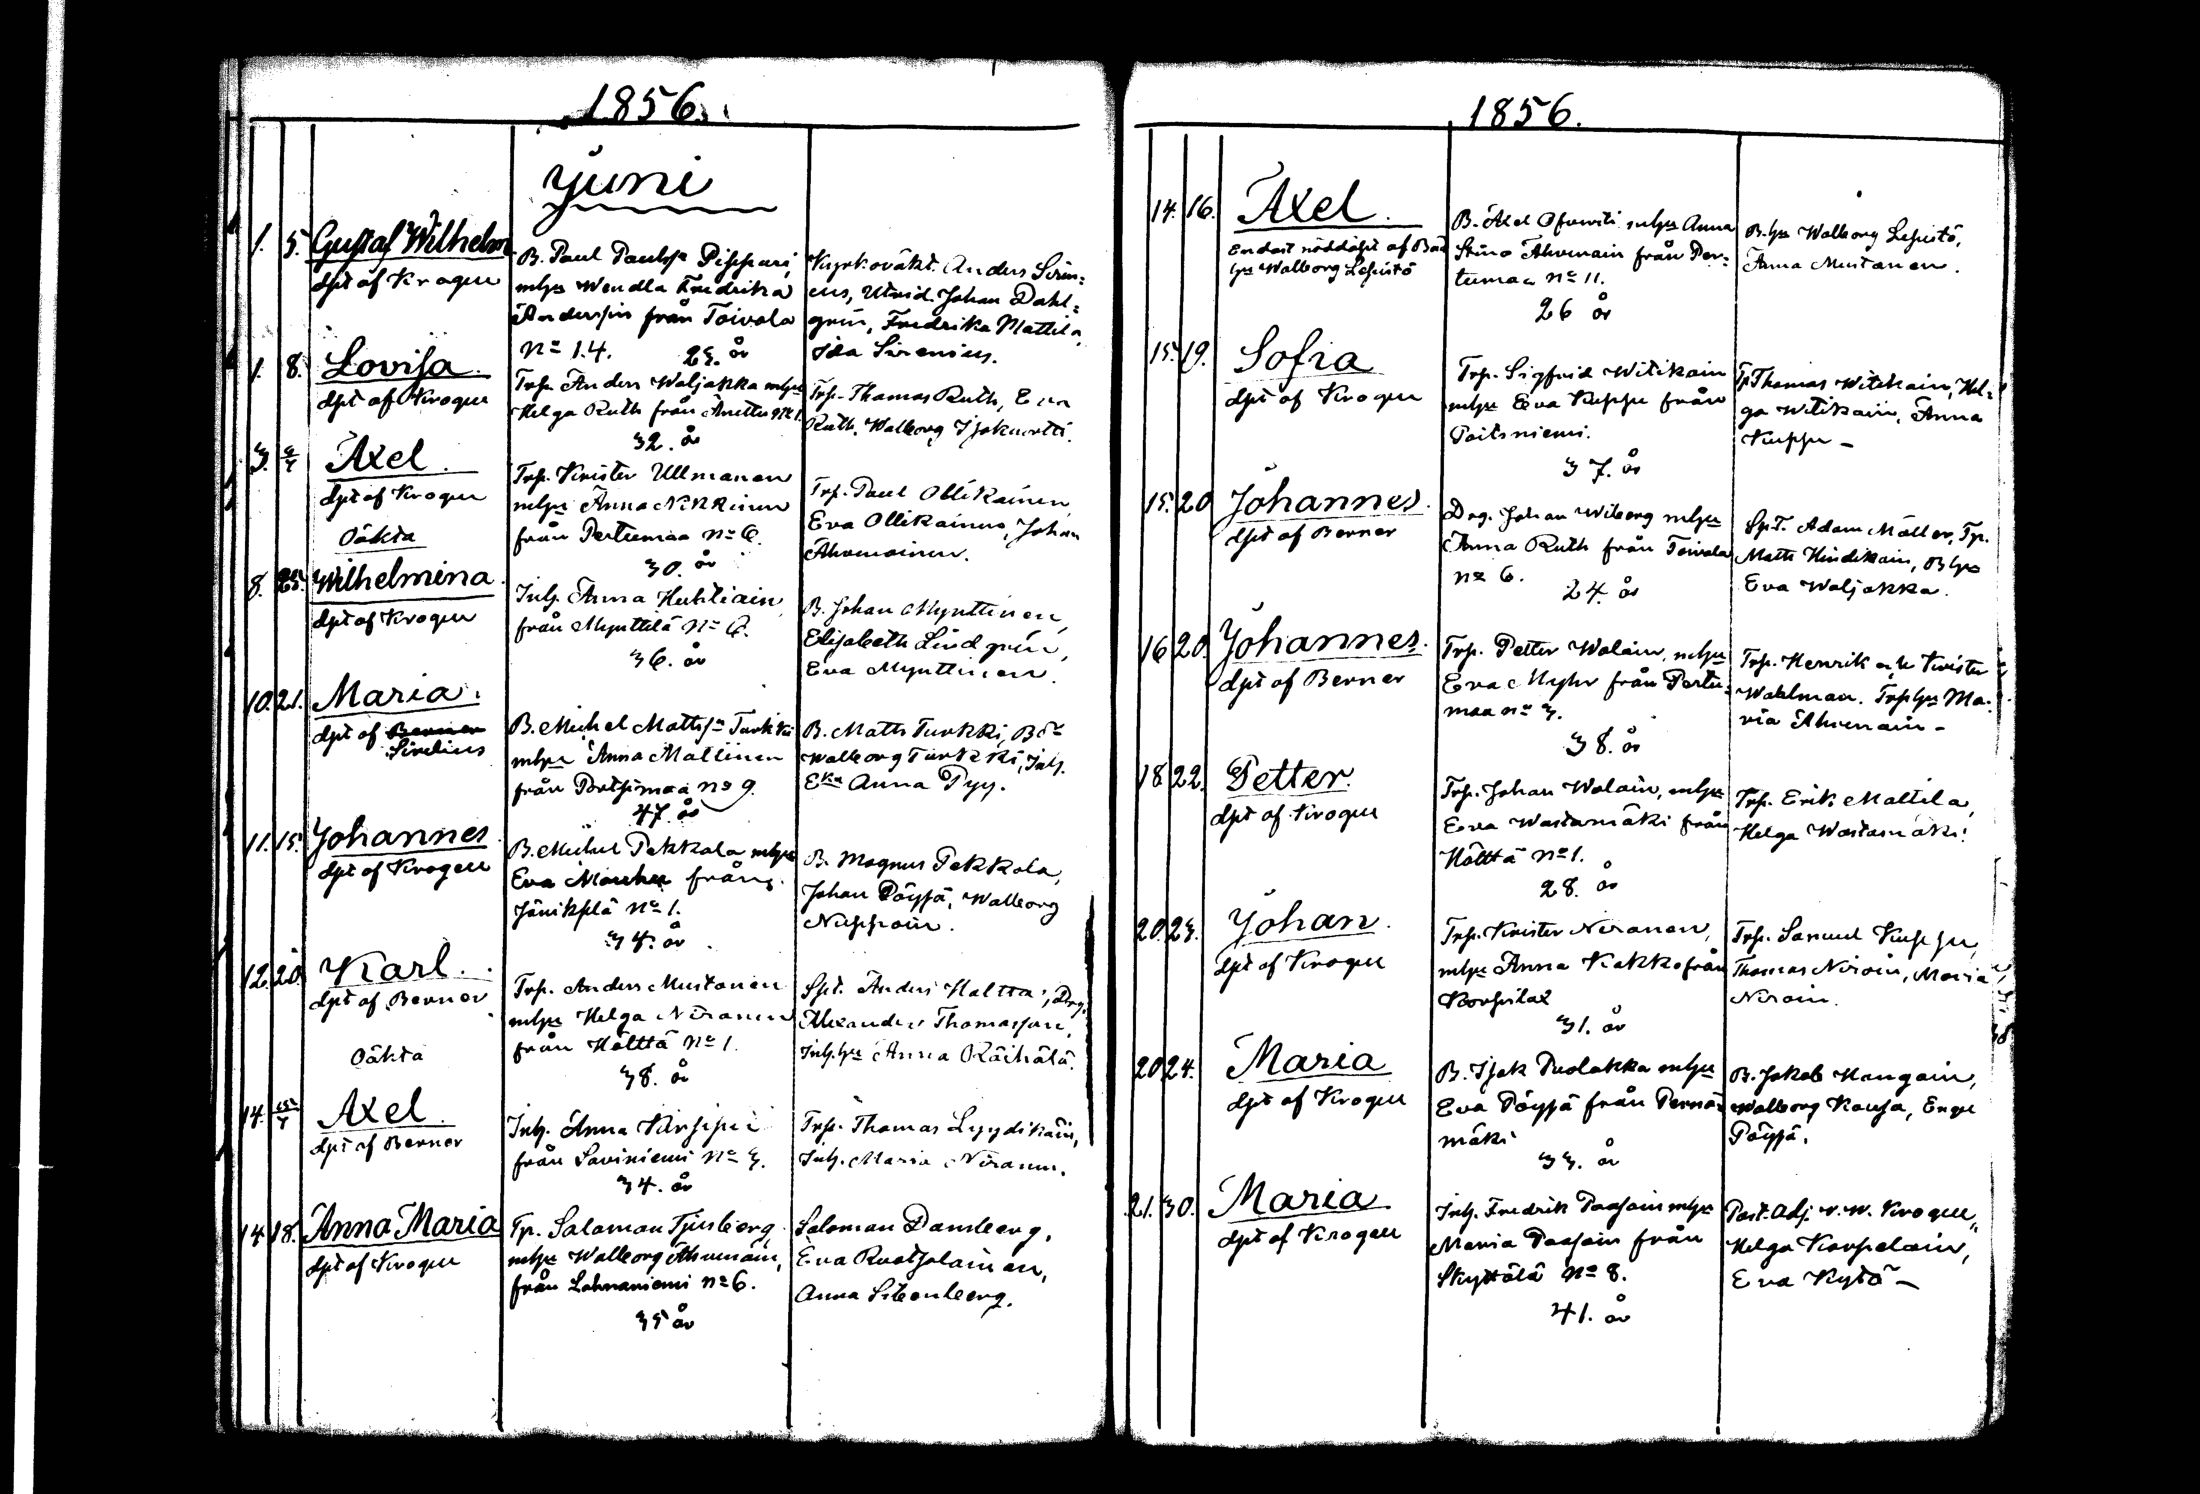 1856.
Juni
1. 5. Gustaf Wilhelm
döpt af Krogell
B. Paul Paulss. Pippuri,
mhu Wendla Fredrika
Andersin från Toivola
No 14. 23. år
Kyrkovakt. Anders Siren-
ius, Utrid. Johan Dahl-
grén, Fredrika Mattila,
Ida Sirenius.
1. 8. Lovisa
döpt af Krogell
Trp. Anders Waljakka mhu
Helga Ruth från Anttu No 1.
32. år
Trp. Thomas Ruth, Eva
Ruth, Walborg
3. Axel
döpt af Krogell
Oäkta
Trp. Krister Ullmanen
mhu Anna Nikkinen
från Pertumaa No 6.
30. år
Trp. Paul Ollikainen,
Eva Ollikainen, Johan
Ahvenainen.
8. 25. Wilhelmina
döpt af Krogell
Inh. Anna Huhtiain
från Mynttilä No 6.
36. år
B. Johan Mynttinen,
Elisabeth Lindgrén,
Eva Mynttinen.
10. 21. Maria.
döpt af Berner
Sirelius
B. Michel Mattss. Turkki
mhu Anna Mallinen
från Pertjimaa No 9.
47. år
B. Matts Turkki, Bdr
Walborg Turkki, Inh.
Eka Anna Pyy.
11. 15. Johannes
döpt af Krogell
B. Michel Pekkola mhu
Eva från
No 1.
34. år
B. Magnus Pekkola,
Johan Pöyjä, Walborg
Nuppoin.
12. 20. Karl.
döpt af Berner
Oäkta
Trp. Anders Mustonen
mhu Helga Niranen
från Hölttä No 1.
38. år
Spt. Anders Holtta, Drg.
Alexander Thomasson,
Inh. hu Anna Räihälä.
14. Axel
döpt af Berner
Inh. Anna
från Saviniemi No 3.
34. år
Trp. Thomas Lyydikäin,
Inh. Maria Niranen.
14. 18. Anna Maria
döpt af Krogell
Tp. Salomon Tjusberg
mhu Walborg Ahvenain,
från Lahnaniemi No 6.
35 år
Salomon Damberg,
Eva Ruotsalainen,
Anna Silfvenberg.
1856.
14. 16. Axel.
Endast nöddöpt af Bde
hu Walborg Lepistö
B. Axel mhu Anna
Stina Ahvenain från Per-
tumaa No 11.
26 år
B. hu Walborg Lepistö,
Anna Mustonen.
15. 19. Sofia
döpt af Krogell
Trp. Sigfrid Witikain
mhu Eva Kuppu från
Paitsniemi.
37. år
Tp Thomas Witikain, Hel-
ga Witikain, Anna
Kuppu –
15. 20 Johannes.
döpt af Berner
Drg. Johan Wiberg mhu
Anna Ruth från Toivola
No 6.
24. år
Spt. Adam Möller, Tp.
Matts Hindikain, B hu
Eva Waljakka.
16 20. Johannes.
döpt af Berner
Trp. Petter Walain, mhu
Eva Myhr från Pertu-
maa No 3.
38. år
Trp. Henrik och Krister
Wahlman. Trp hu Ma-
ria Ahvenain –
18 22. Petter.
döpt af Krogell
Trp. Johan Walain, mhu
Eva Wastamäki från
Hölttä No 1.
28. år
Trp. Erik Mattila,
Helga Wastamäki.
20. 23. Johan.
döpt af Krogell
Trp. Krister Niranen,
mhu Anna Kakko från
Korpilax
31. år
Trp. Samuel Kuppu,
Thomas Niroin, Maria
Niroin.
20 24. Maria
döpt af Krogell
B. Isak Puolakka mhu
Eva Pöyjä från Pernä-
mäki
33. år
B. Jakob Mangain,
Walborg Kausa, Engu
Pöyjä.
21. 30. Maria
döpt af Krogell
Inh. Fredrik Paasoin mhu
Maria Paasoin från
Skyttälä No 8.
41. år
Past. Adj. v. W. Krogell,
Helga Korpelain,
Eva Kytö –